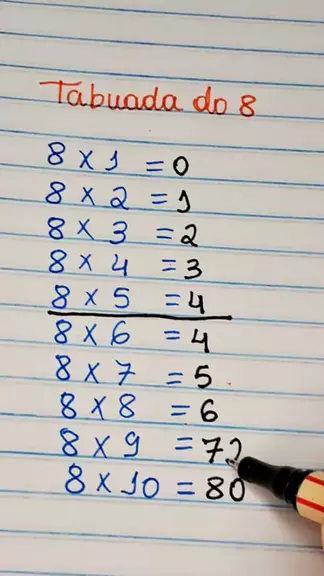 Tabuada do 8
8 x 1 = 0
8 x 2 = 1
8 x 3 = 2
8 x 4 = 3
8 x 5 = 4
8 x 6 = 4
8 x 7 = 5
8 x 8 = 6
8 x 9 = 72
8 x 10 = 80